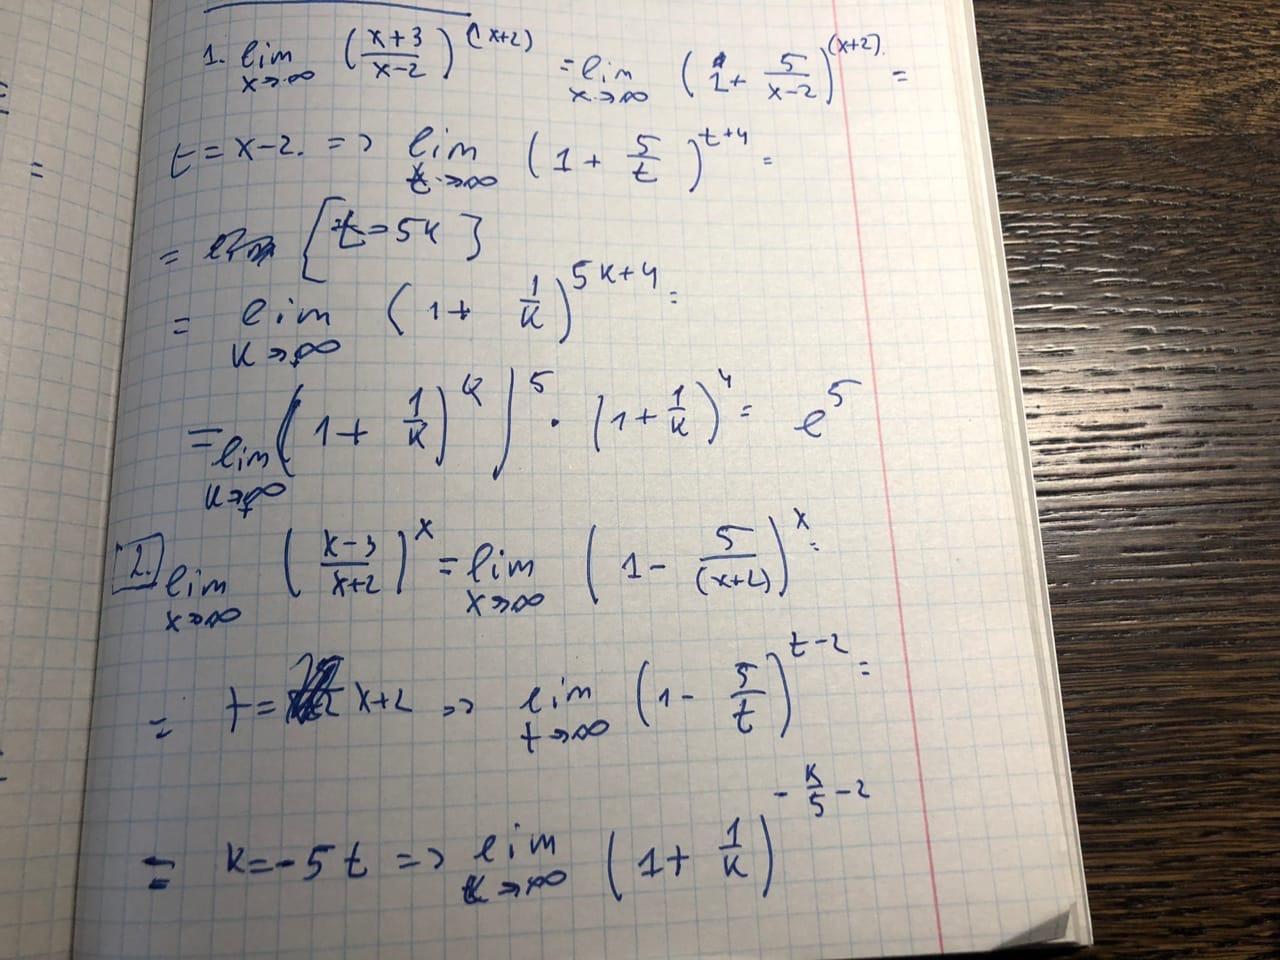 1. lim x→∞ ((x+3)/(x-2))^(x+2) = lim x→∞ (1 + 5/(x-2))^(x+2) =
t = x-2. => lim t→∞ (1 + 5/t)^(t+4) =
= [t = 5k}
= lim k→∞ (1 + 1/k)^(5k+4) =
= lim k→∞ ((1 + 1/k)^k)^5 · (1 + 1/k)^4 = e^5
2. lim x→∞ ((x-3)/(x+2))^x = lim x→∞ (1 - 5/(x+2))^x =
= t = x+2 => lim t→∞ (1 - 5/t)^(t-2) =
= k = -5t => lim k→∞ (1 + 1/k)^(-k/5 - 2)